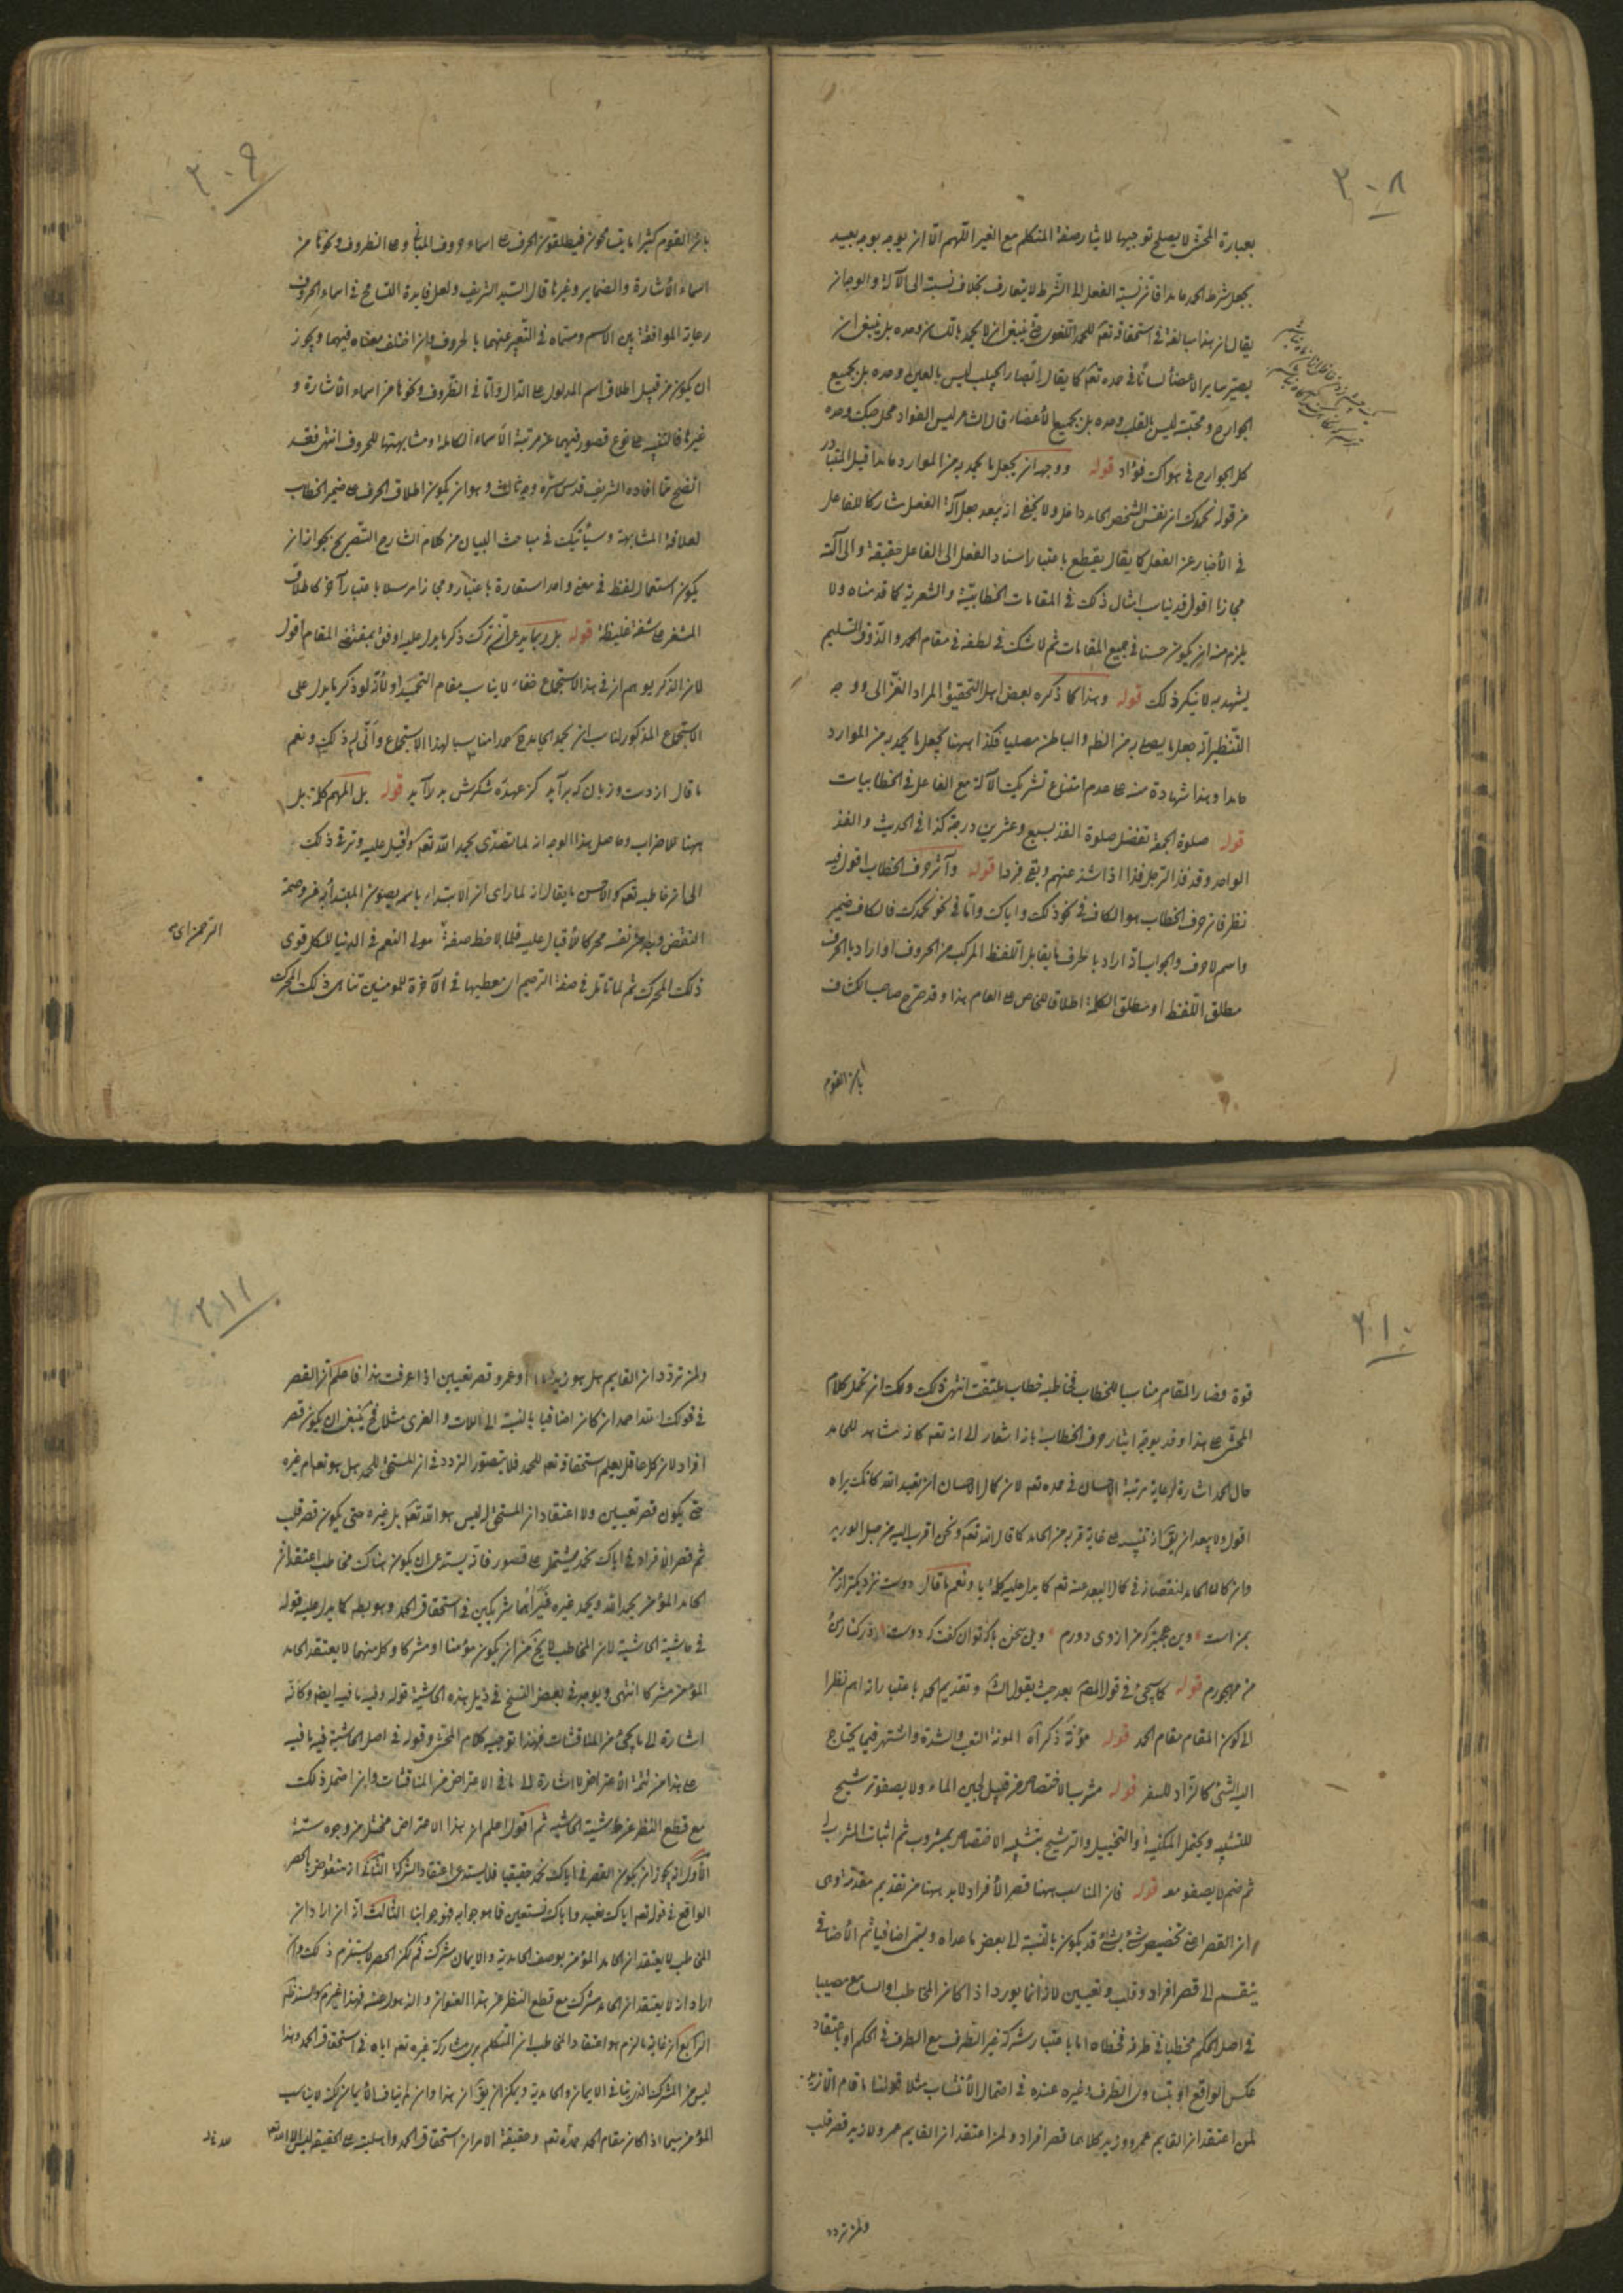 ٣٠٨
بعبارة المحشى لا يصلح توجيها لايثار صيغة المتكلم مع الغير اللهم الا ان يوجه بوجه بعيد
يجعل شرط الحمد حامدا فان نسبة الفعل الى الشرط لا يتعارف بخلاف نسبته الى الآلة والوجه ان
يقال ان هذا مبالغة في استحقاقه تعالى للحمد اللغوى حتى ينبغى ان لا يحمد باللسان وحده بل ينبغى ان
يصير ساير الاعضاء لسانا في حمده تعالى كما يقال ابصار الحبيب ليس بالعين وحده بل بجميع
الجوارح ومحبته ليس بالقلب وحده بل بجميع الأعضاء قال الشاعر ليس الفؤاد محل حبك وحده
كل الجوارح في هواك فؤاد قوله ووجه ان يجعل ما يحمد به من الموارد حامدا قيل المتبادر
من قوله نحمدك ان نفس الشخص الحامد داخل ولا يخفى انه يبعد جعل آلة الفعل مشاركا للفاعل
في الأخبار عن الفعل كما يقال يقطع باعتبار اسناد الفعل الى الفاعل حقيقة والى آلته
مجازا اقول قد يناسب امثال ذلك في المقامات الخطابية والشعرية كما قدمناه ولا
يلزم منه ان يكون حسنا في جميع المقامات ثم لا شك في لطفه في مقام الحمد والذوق السليم
يشهد به لا ينكر ذلك قوله وهذا كما ذكره بعض اهل التحقيق المراد الغزالى ووجه
التنظير انه جعل ما يصلى به من الظاهر والباطن مصليا فكذا ههنا يجعل ما يحمد به من الموارد
حامدا وهذا شهادة منه على عدم امتناع تشريك الآلة مع الفاعل في الخطابيات
قوله صلوة الجمعة تفضل صلوة الفذ بسبع وعشرين درجة كذا في الحديث والفذ
الواحد وقد فذ الرجل فذا اذا شذ عنهم وبقى فردا قوله وآثر حرف الخطاب اقول فيه
نظر فان حرف الخطاب هو الكاف في نحو ذلك واياك واما في نحو نحمدك فالكاف ضمير
واسم لا حرف والجواب انه اراد بالحرف ما يقابل اللفظ المركب من الحروف او اراد بالحرف
مطلق اللفظ او مطلق الكلمة اطلاق للخاص على العام هذا وقد صرح صاحب الكشاف
بان القوم
٣٠٩
بان القوم كثيرا ما يتسامحون فيطلقون الحرف على اسماء حروف المبانى وعلى الظروف ونحوها من
اسماء الأشارة والضماير وغيرها قال السيد الشريف ولعل فايدة التسامح في اسماء الحروف
رعاية الموافقة بين الاسم ومسماه في التعبير عنهما بالحروف وان اختلف معناه فيهما ويجوز
ان يكون من قبيل اطلاق اسم المدلول على الدال واما في الظروف ونحوها من اسماء الاشارة و
غيرها فالتنبيه على نوع قصور فيهما عن مرتبة الأسماء الكاملة ومشابهتها للحروف انتهى فقد
اتضح مما افاده الشريف قدس سره وجه ثالث وهو ان يكون اطلاق الحرف على ضمير الخطاب
لعلاقة المشابهة وسيأتيك في مباحث البيان من كلام الشارح التصريح بجواز ان
يكون استعمال لفظ في معنى واحد استعارة باعتبار ومجازا مرسلا باعتبار آخر كاطلاق
المشفر على شفة غليظة قوله بل ربما يدعى ان ترك ذكر ما يدل عليه اوفق بمقتضى المقام اقول
لان الذكر يوهم ان في هذا الاستجماع خفاء لا يناسب مقام التحميد او لأنه لو ذكر ما يدل على
الاستجماع المذكور لناسب ان يحمد الحامد على حمدا مناسبا لهذا الاستجماع وأنى له ذلك ونعم
ما قال از دست وزبان كه برآيد كز عهده شكرش بدر آيد قوله بل المهم كلمة بل
ههنا للاضراب وحاصل هذا الوجه انه لما تصدى بحمد الله تعالى واقبل عليه وترقى ذلك
الى ان خاطبه تعالى والاحسن ما يقال انه لما راى ان الابتداء باسمه يصون المبتدأ به عن وصمة
النقض وجد من نفسه محركا لأقبال عليه فلما لاحظ صفة مولى النعم في الدنيا للكل قوى
ذلك المحرك ثم لما تأمل في صفة الرحيم اى معطيها في الآخرة للمؤمنين تناهى ذلك المحرك
الرحمن اى
٣١٠
قوة فصار المقام مناسبا للخطاب فخاطبه خطاب ملتفت انتهى ذلك ولك ان تحمل كلام
المحشى على هذا وقد يوجه ايثار حرف الخطاب بانه اشعار الى انه تعالى كان مشاهد للحامد
حال الحمد اشارة لرعاية مرتبة الاحسان في حمده تعالى لان كمال الاحسان ان تعبد الله كانك تراه
اقول ولا يبعد ان يق انه تنبيه على غاية قربه من الحامد كما قال الله تعالى ونحن اقرب اليه من حبل الوريد
وان كان الحامد لنقصانه في كمال البعد عنه تعالى كما يدل عليه كلمة يا ونعم ما قال دوست نزديكتر از من
بمن است وين عجبتر كه من از وى دورم وين سخن باكه توان كفت كه دوست در كنار من
من مهجورم قوله كما سيجئ في قول المص بعد حيث يقول الش وتقديم الحمد باعتبار انه اهم نظرا
الى كون المقام مقام الحمد قوله مؤنة ذكر آه المونة التعب والشدة واشتهر فيما يحتاج
اليه الشئ كالزاد للسفر قوله مشرب الاختصاص من قبيل لجين الماء ولا يصفو ترشيح
للتشبيه ويحتمل المكنية والتخييل والترشيح بتشبيه الاختصاص بمشروب ثم اثبات المشرب له
ثم ضم لا يصفو معه قوله فان المناسب ههنا قصر الأفراد لابد ههنا من تقديم مقدمة وهى
ان القصر اى تخصيص شئ بشئ قد يكون بالنسبة الى بعض ما عداه ويسمى اضافيا ثم الأضافى
ينقسم الى قصر افراد وقلب وتعيين لانه انما يورد اذا كان المخاطب او السامع مصيبا
في اصل الحكم مخطيا في ظرفه فخطاه اما باعتبار شركة غير الطرف مع الطرف في الحكم او باعتقاد
عكس الواقع او بتساوى الطرف وغيره عنده في احتمال الأنتساب مثلا قولنا ما قام الا زيد
لمن اعتقد ان القايم عمرو وزيد كلاهما قصر افراد ولمن اعتقد ان القايم عمرو لا زيد قصر قلب
ولمن تردد
٣١١
ولمن تردد ان القايم هل هو زيد او عمرو قصر تعيين اذا عرفت هذا فاعلم ان القصر
في قولك الله احمد ان كان اضافيا بالنسبة الى اللات والعزى مثلا فح ينبغى ان يكون قصر
افراد لان كل عاقل يعلم استحقاقه تعالى للحمد فلا يتصور التردد في ان المستحق للحمد هل هو تعالى ام غيره
حتى يكون قصر تعيين ولا اعتقاد ان المستحق له ليس هو الله تعالى بل غيره حتى يكون قصر قلب
ثم قصر الافراد في اياك نحمد مشتمل على قصور فانه يستدعى ان يكون هناك مخاطب اعتقد ان
الحامد المؤمن يحمد الله ويحمد غيره فيراهما شريكين في استحقاق الحمد وهو بط كما يدل عليه قوله
في حاشية الحاشية لان المخاطب لا يخ من ان يكون مؤمنا او مشركا وكل منهما لا يعتقد الحامد
المؤمن مشركا انتهى ويوجد في بعض النسخ في ذيل هذه الحاشية قوله وفيه ما فيه ايض وكانه
اشارة الى ما يجئ من المناقشات فهذا توجيه كلام المحشى وقوله في اصل الحاشية فيه ما فيه
على هذا من تتمة الأعتراض لا اشارة الى ما في الاعتراض من المناقشات وان احتمل ذلك
مع قطع النظر عن حاشية الحاشيه ثم اقول اعلم ان هذا الاعتراض مختل من وجوه ستة
الأول انه يجوز ان يكون القصر في اياك نحمد حقيقيا فلا يستدعى اعتقاد الشركة الثانى انه منقوض بالحصر
الواقع في قوله تعالى اياك نعبد واياك نستعين فما هو جوابه فهو جوابنا الثالث انه ان اراد ان
المخاطب لا يعتقد ان الحامد المؤمن بوصف الحامدية والايمان مشرك فم لكن الحصر لا يستلزم ذلك وان
اراد انه لا يعتقد ان الحامد مشرك مع قطع النظر عن هذا العنوان والذهول عنه فهذا غير م والسند ظ
الرابع ان غاية ما لزم هو اعتقاد المخاطب ان المتكلم يرى مشاركة غيره تعالى اياه في استحقاق الحمد وهذا
ليس من الشرك الذى ينافى الايمان والحامدية ويمكن ان يق ان هذا وان لم يناف الأيمان لكنه لا يناسب
المؤمن سيما اذا كان مقام الحمد حمد الله تعالى وحقيقة الامر ان استحقاق الحمد واهليته على الحقيقة ليس الا الله تعالى